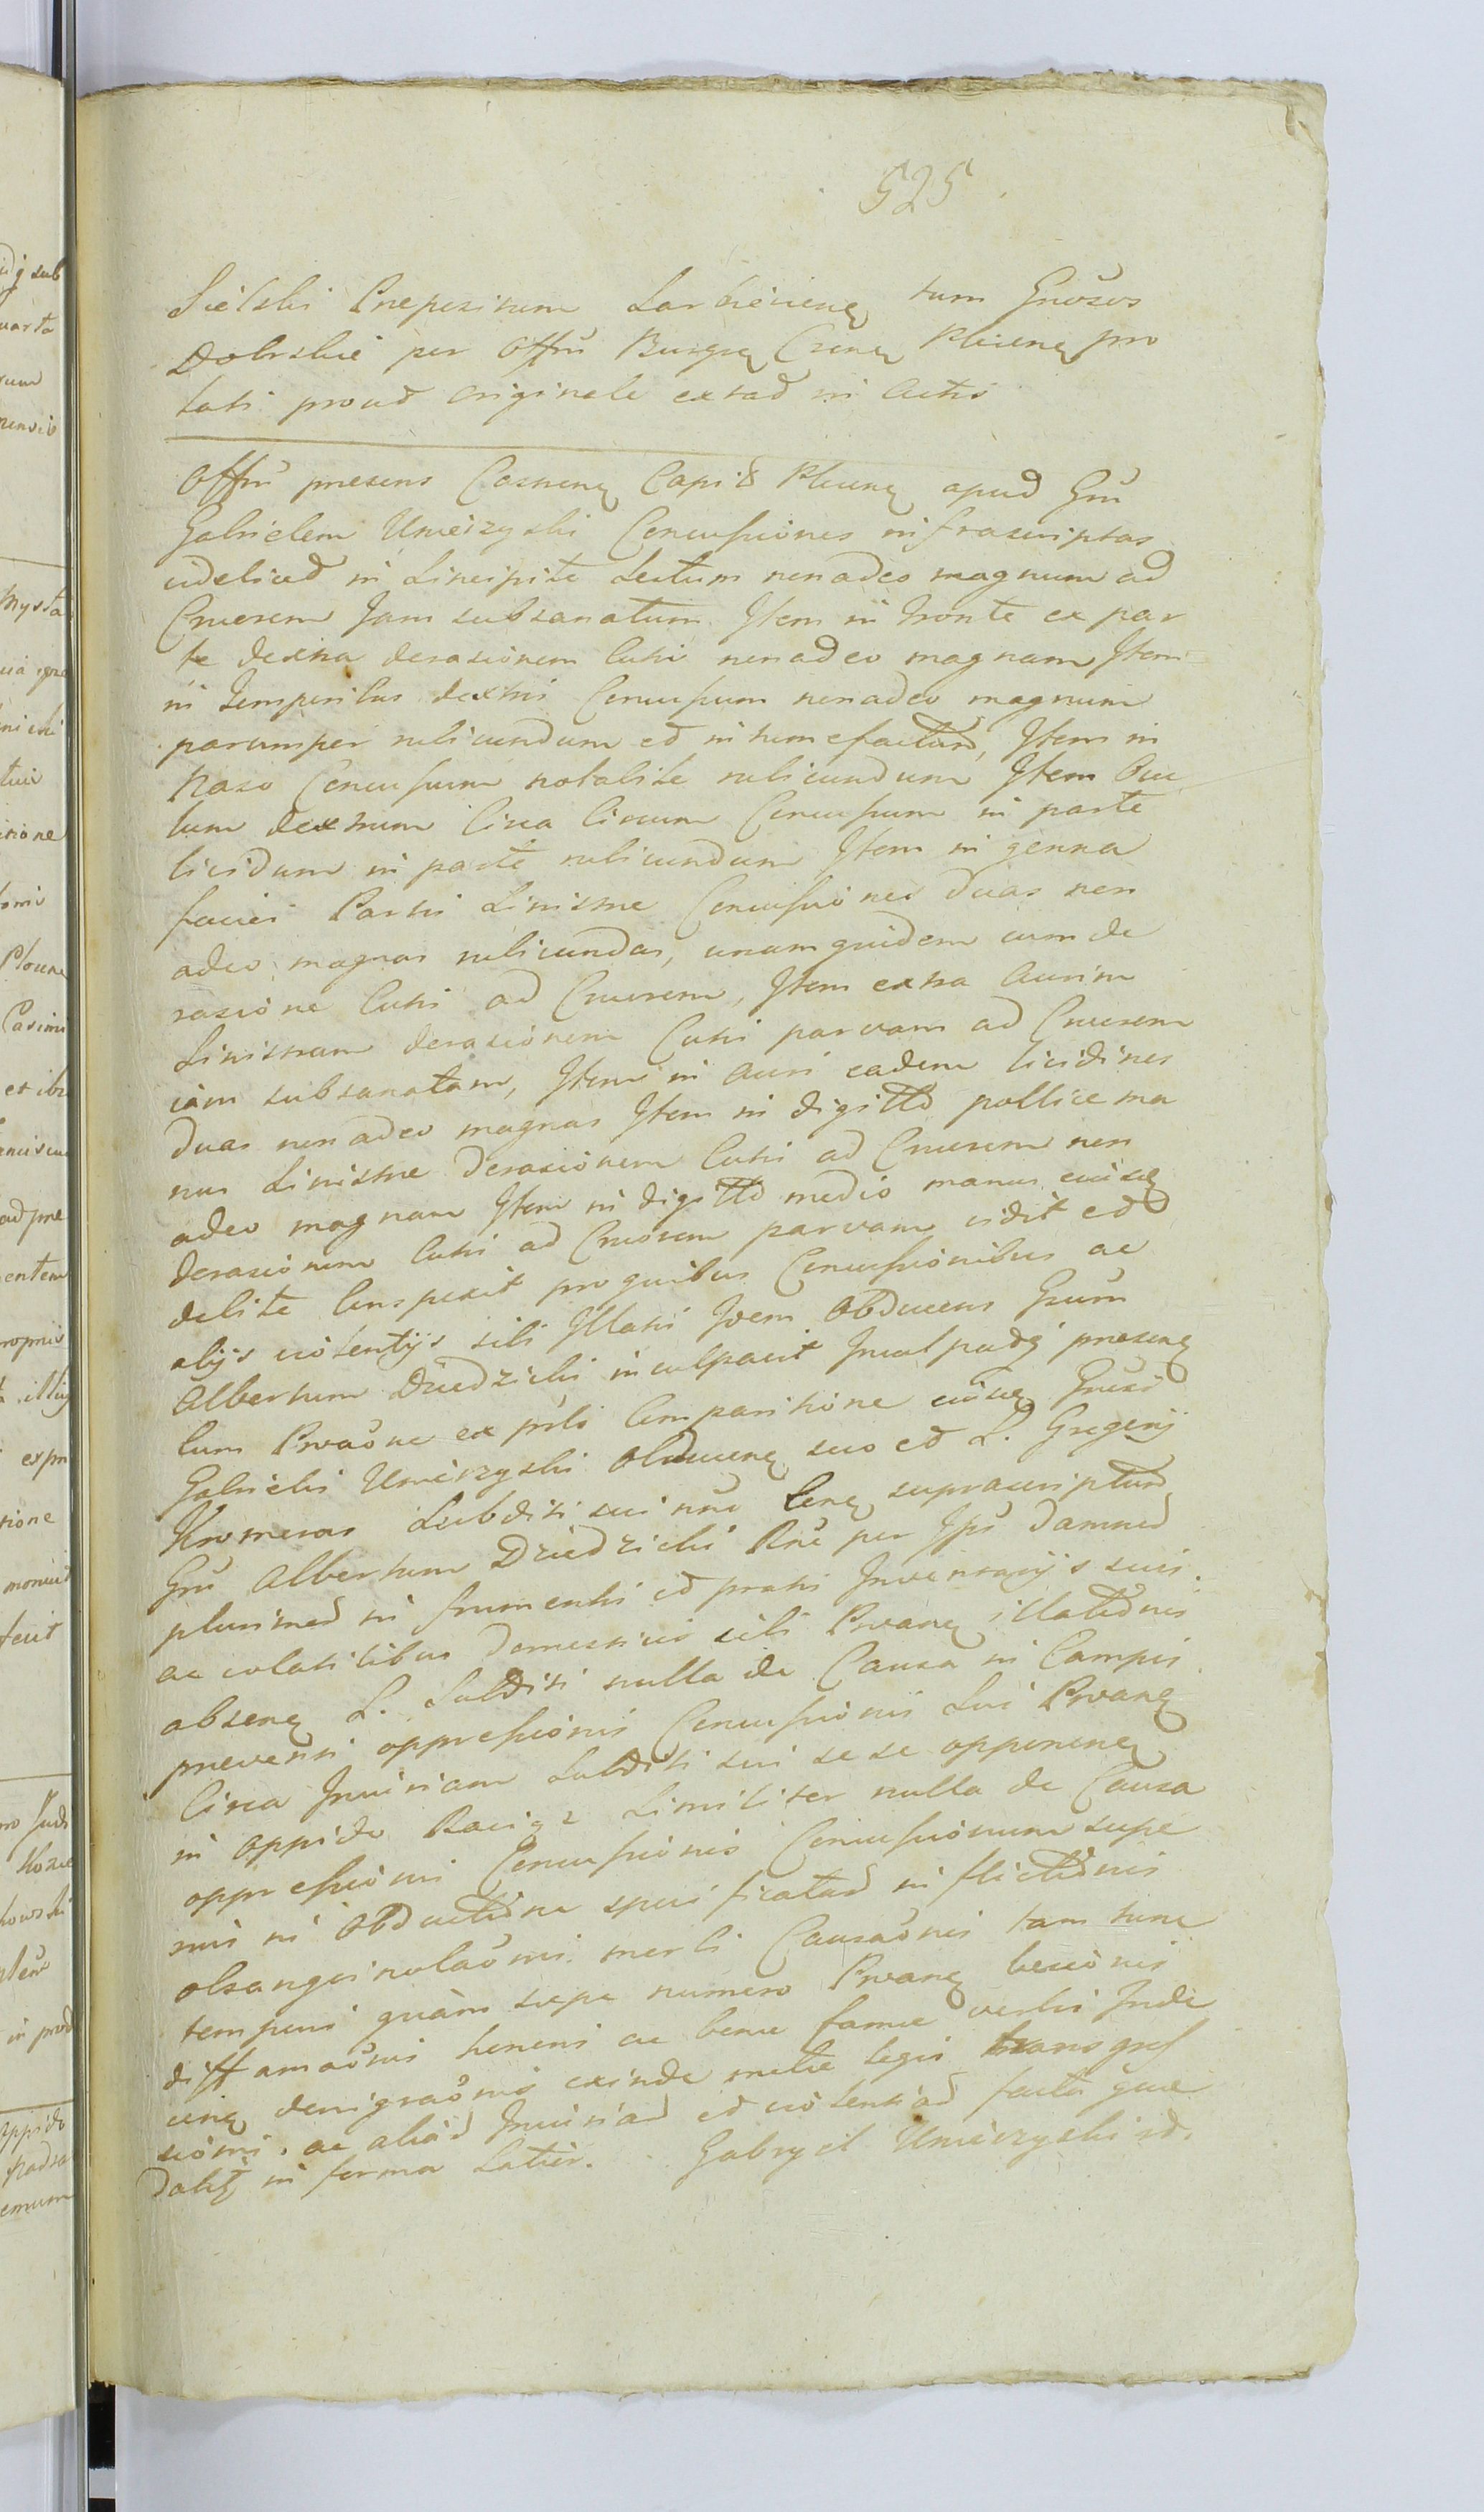 525
Sielski Prepositum Sarbievienę tum Gnosos
Dobrskie per Offm Burgę Csenę Plicenę pro
lati proud originale extad in Actis
Offm presens Casnenę Capit Plicenę apud Gm
Gabrielem Umieizyski Concussiones infrascriptas
videliced in Sincipite Sectum non adeo magnum ad
Cruorem Jam subsanatum Item in fronte ex par
te dextra derasionem Cutis non adeo magnam Item
in temporibus dextris Concussum non adeo magnum
parumper rubicundum ed intumefactum, Item in
Naso Concussum notabile rubicundum Item Ocu
lum dextrum Circa Circum Concussum in parte
lividum in parte rubicundum Item in genna
faciei Partis Sinistre Concussiones duas non
adeo magnas rubicundas, unam quidem cum de
rasione Cutis ad Cruorem, Item extra Aurim
Sinistram derasionem Cutis parvam ad Cruorem
iam subsanatam, Item in Auri eadem lividines
duas non adeo magnas Item in digitto pollice ma
nus Sinistre derasionem Cutis ad Cruorem non
adeo magnam Item in digitto medio manus eiusdę
derasionem Cutis ad Cruorem parvam vidit ed
debite Conspexit pro quibus Concussionibus ac
alijs violentijs sibi Illatis Idem Obducens Gnum
Albertum Dziedzicki inculpavit Inculpadq presenę
Cum Prvaõne ex pñli Comparitione eiusdę Gnosi
Gabrielis Umieizyski Obducenę suo ed L. Gregorij
Kromeras Subditi sui nnõ Conę suprascriptum
Gm Albertum Dziedzicki Rne per Ipm damnod
plurimod in frumentis ed pratis Inventarijs suis
ac volatilibus domesticis sibi Prvanę illatiõnis
absenę L. Subditi nulla de Causa in Campis
preventi oppressionis Concussionis Sui Prvanę
Circa Iniuriam Subditi sui sese opponenę
in oppido Raciąz Similiter nulla de Causa
oppressionis Concussionis Concussionum supe
rius in Obductiõne specificatad inflictiõnis
obsanguinolaõnis merbi Causaõnis tam tunc
temporis quàm sepe numero Prvanę lesionis
diffamaõnis honoris ac bone fame verbis Inde
cenę denigraõnis exinde multe legis transgres
sionis. ac aliad Iniuriad ed violentiad facta que
dabit in forma Latior. Gabryel Umieizyski sd.